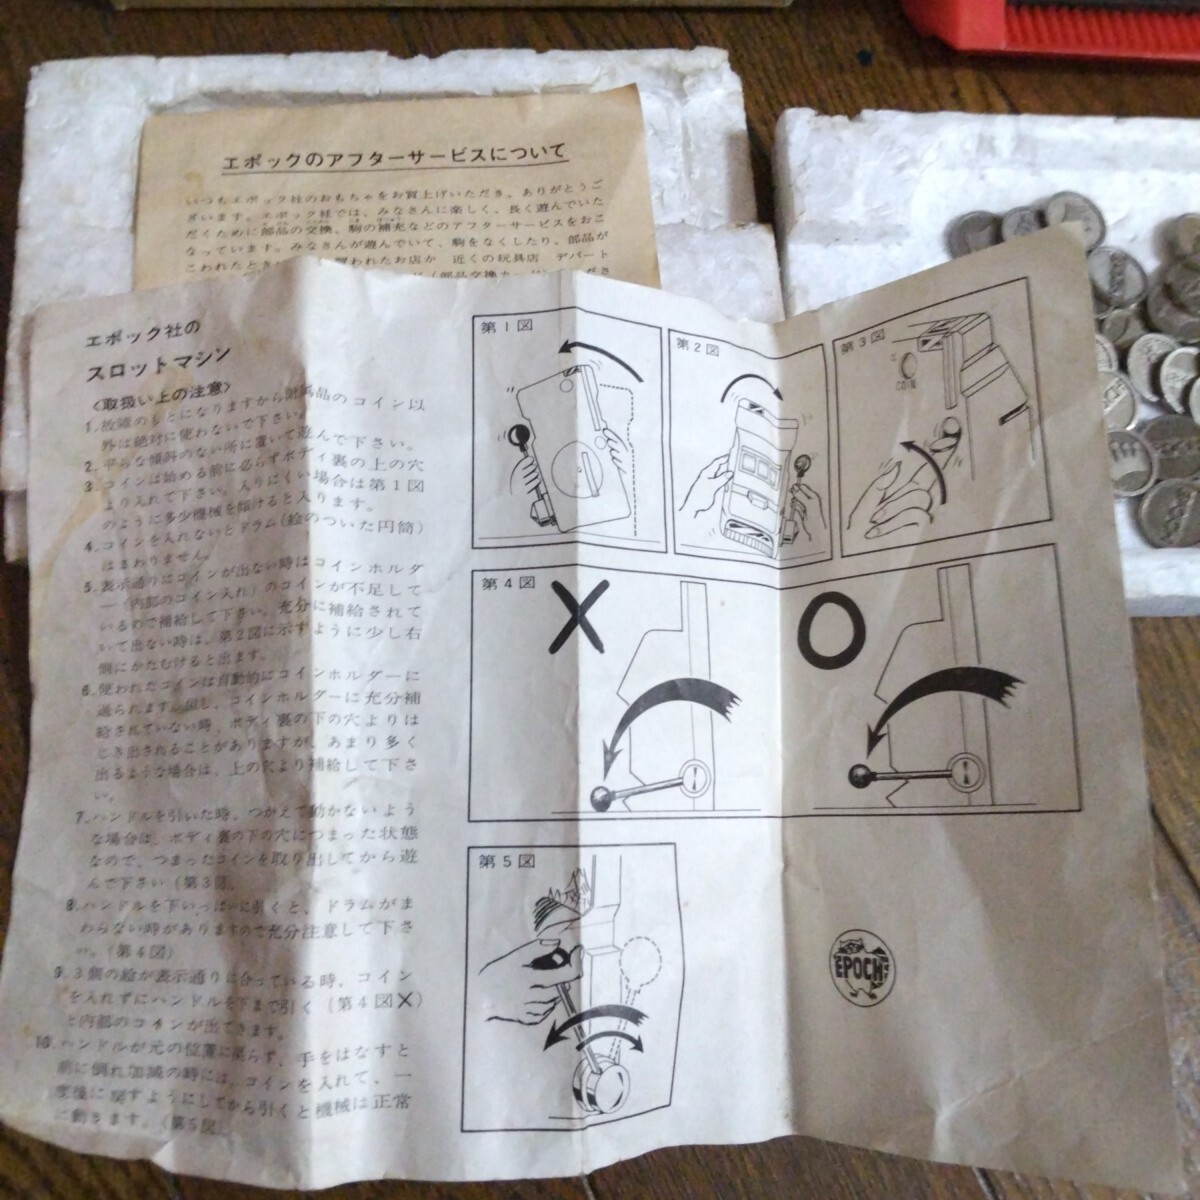 エポックのアフターサービスについて
いつもエポック社のおもちゃをお買上げいただき、ありがとうご
ざいます。エポック社では、みなさんに楽しく、長く遊んでいた
だくために部品の交換、駒の補充などのアフターサービスをおこ
なっています。みなさんが遊んでいて、駒をなくしたり、部品が
こわれたとき 買われたお店か 近くの玩具店 デパート
(部品交換カード
エポック社の
スロットマシン
<取扱い上の注意>
1.故障のもとになりますから附属品のコイン以
外は絶対に使わないで下さい。
2.平らな傾斜のない所に置いて遊んで下さい。
3.コインは始める前に必らずボディ裏の上の穴
より入れて下さい。入りにくい場合は第1図
のように多少機械を傾けると入ります。
4.コインを入れないとドラム(絵のついた円筒)
はまわりません。
5.表示通りにコインが出ない時はコインホルダ
ー(内部のコイン入れ)のコインが不足して
いるので補給して下さい。充分に補給されて
いて出ない時は、第2図に示すように少し右
側にかたむけると出ます。
6.使われたコインは自動的にコインホルダーに
送られます。但し、コインホルダーに充分補
給されていない時、ボディ裏の下の穴よりは
じき出されることがありますが、あまり多く
出るような場合は、上の穴より補給して下さ
い。
7.ハンドルを引いた時、つかえて動かないよう
な場合は、ボディ裏の下の穴につまった状態
なので、つまったコインを取り出してから遊
んで下さい(第3図
8.ハンドルを下いっぱいに引くと、ドラムがま
わらない時がありますので充分注意して下さ
い。(第4図)
9.3個の絵が表示通りに合っている時、コイン
を入れずにハンドルを下まで引く(第4図×)
と内部のコインが出てきます。
10.ハンドルが元の位置に戻らず、手をはなすと
前に倒れ加減の時には、コインを入れて、一
度後に戻すようにしてから引くと機械は正常
に動きます。(第5図
第1図
第2図
第3図
COIN
第4図
第5図
EPOCH